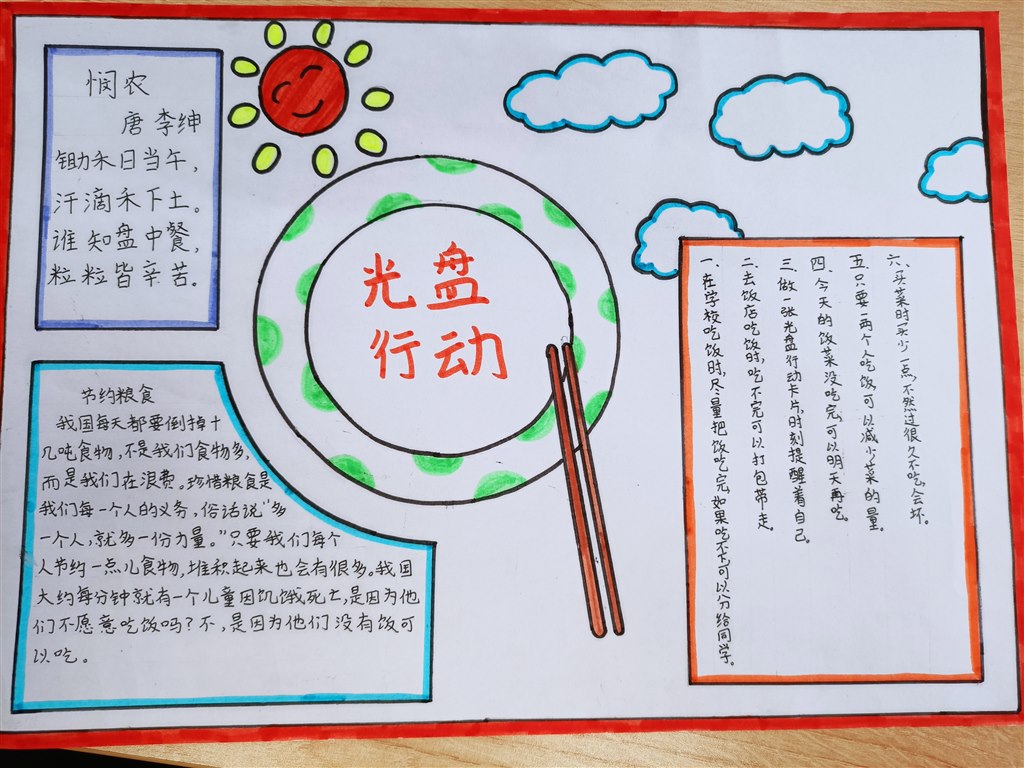 悯农
唐 李绅
锄禾日当午，
汗滴禾下土。
谁知盘中餐，
粒粒皆辛苦。
光盘
行动
节约粮食
我国每天都要倒掉十
几吨食物，不是我们食物多，
而是我们在浪费。珍惜粮食是
我们每一个人的义务，俗话说“多
一个人，就多一份力量。”只要我们每个
人节约一点儿食物，堆积起来也会有很多。我国
大约每分钟就有一个儿童因饥饿死亡，是因为他
们不愿意吃饭吗？不，是因为他们没有饭可
以吃。
一、在学校吃饭时，尽量把饭吃完，如果吃不下，可以分给同学。
二、去饭店吃饭时，吃不完可以打包带走。
三、做一张光盘行动卡片，时刻提醒着自己。
四、今天的饭菜没吃完，可以明天再吃。
五、只要一两个人吃饭，可以减少菜的量。
六、买菜时买少一点，不然过很久不吃，会坏。